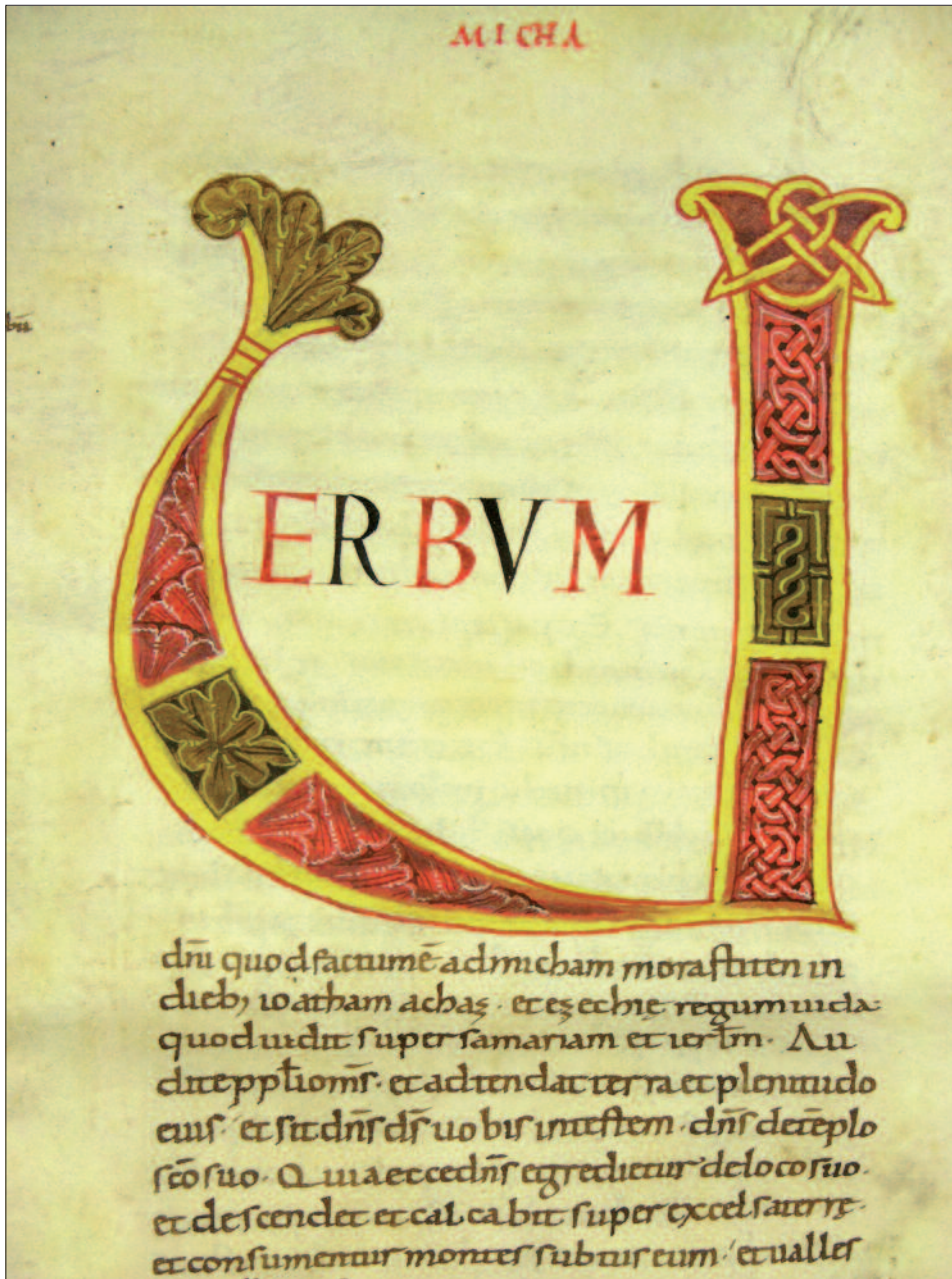 MICHA
VERBVM
dñi quod factum ē ad micham morastiten in
dieb; ioatham achaz · et ezechię regum iuda·
quod uidit super samariam et ierłm· Au
dite ppłi omš· et adtendat terra et plenitudo
eius· et sit dñs ds̄ uobis in testem· dñs de tēplo
sc̄o suo· Quia ecce dñs egredietur de loco suo·
et descendet et calcabit super excelsa terrę·
et consumentur montes subtus eum· et ualles